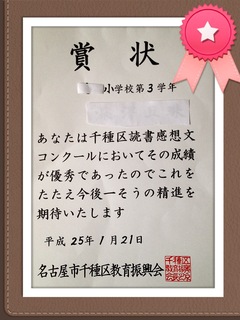 賞状
小学校第3学年
あなたは千種区読書感想文
コンクールにおいてその成績
が優秀であったのでこれを
たたえ今後一そうの精進を
期待いたします
平成25年1月21日
名古屋市千種区教育振興会